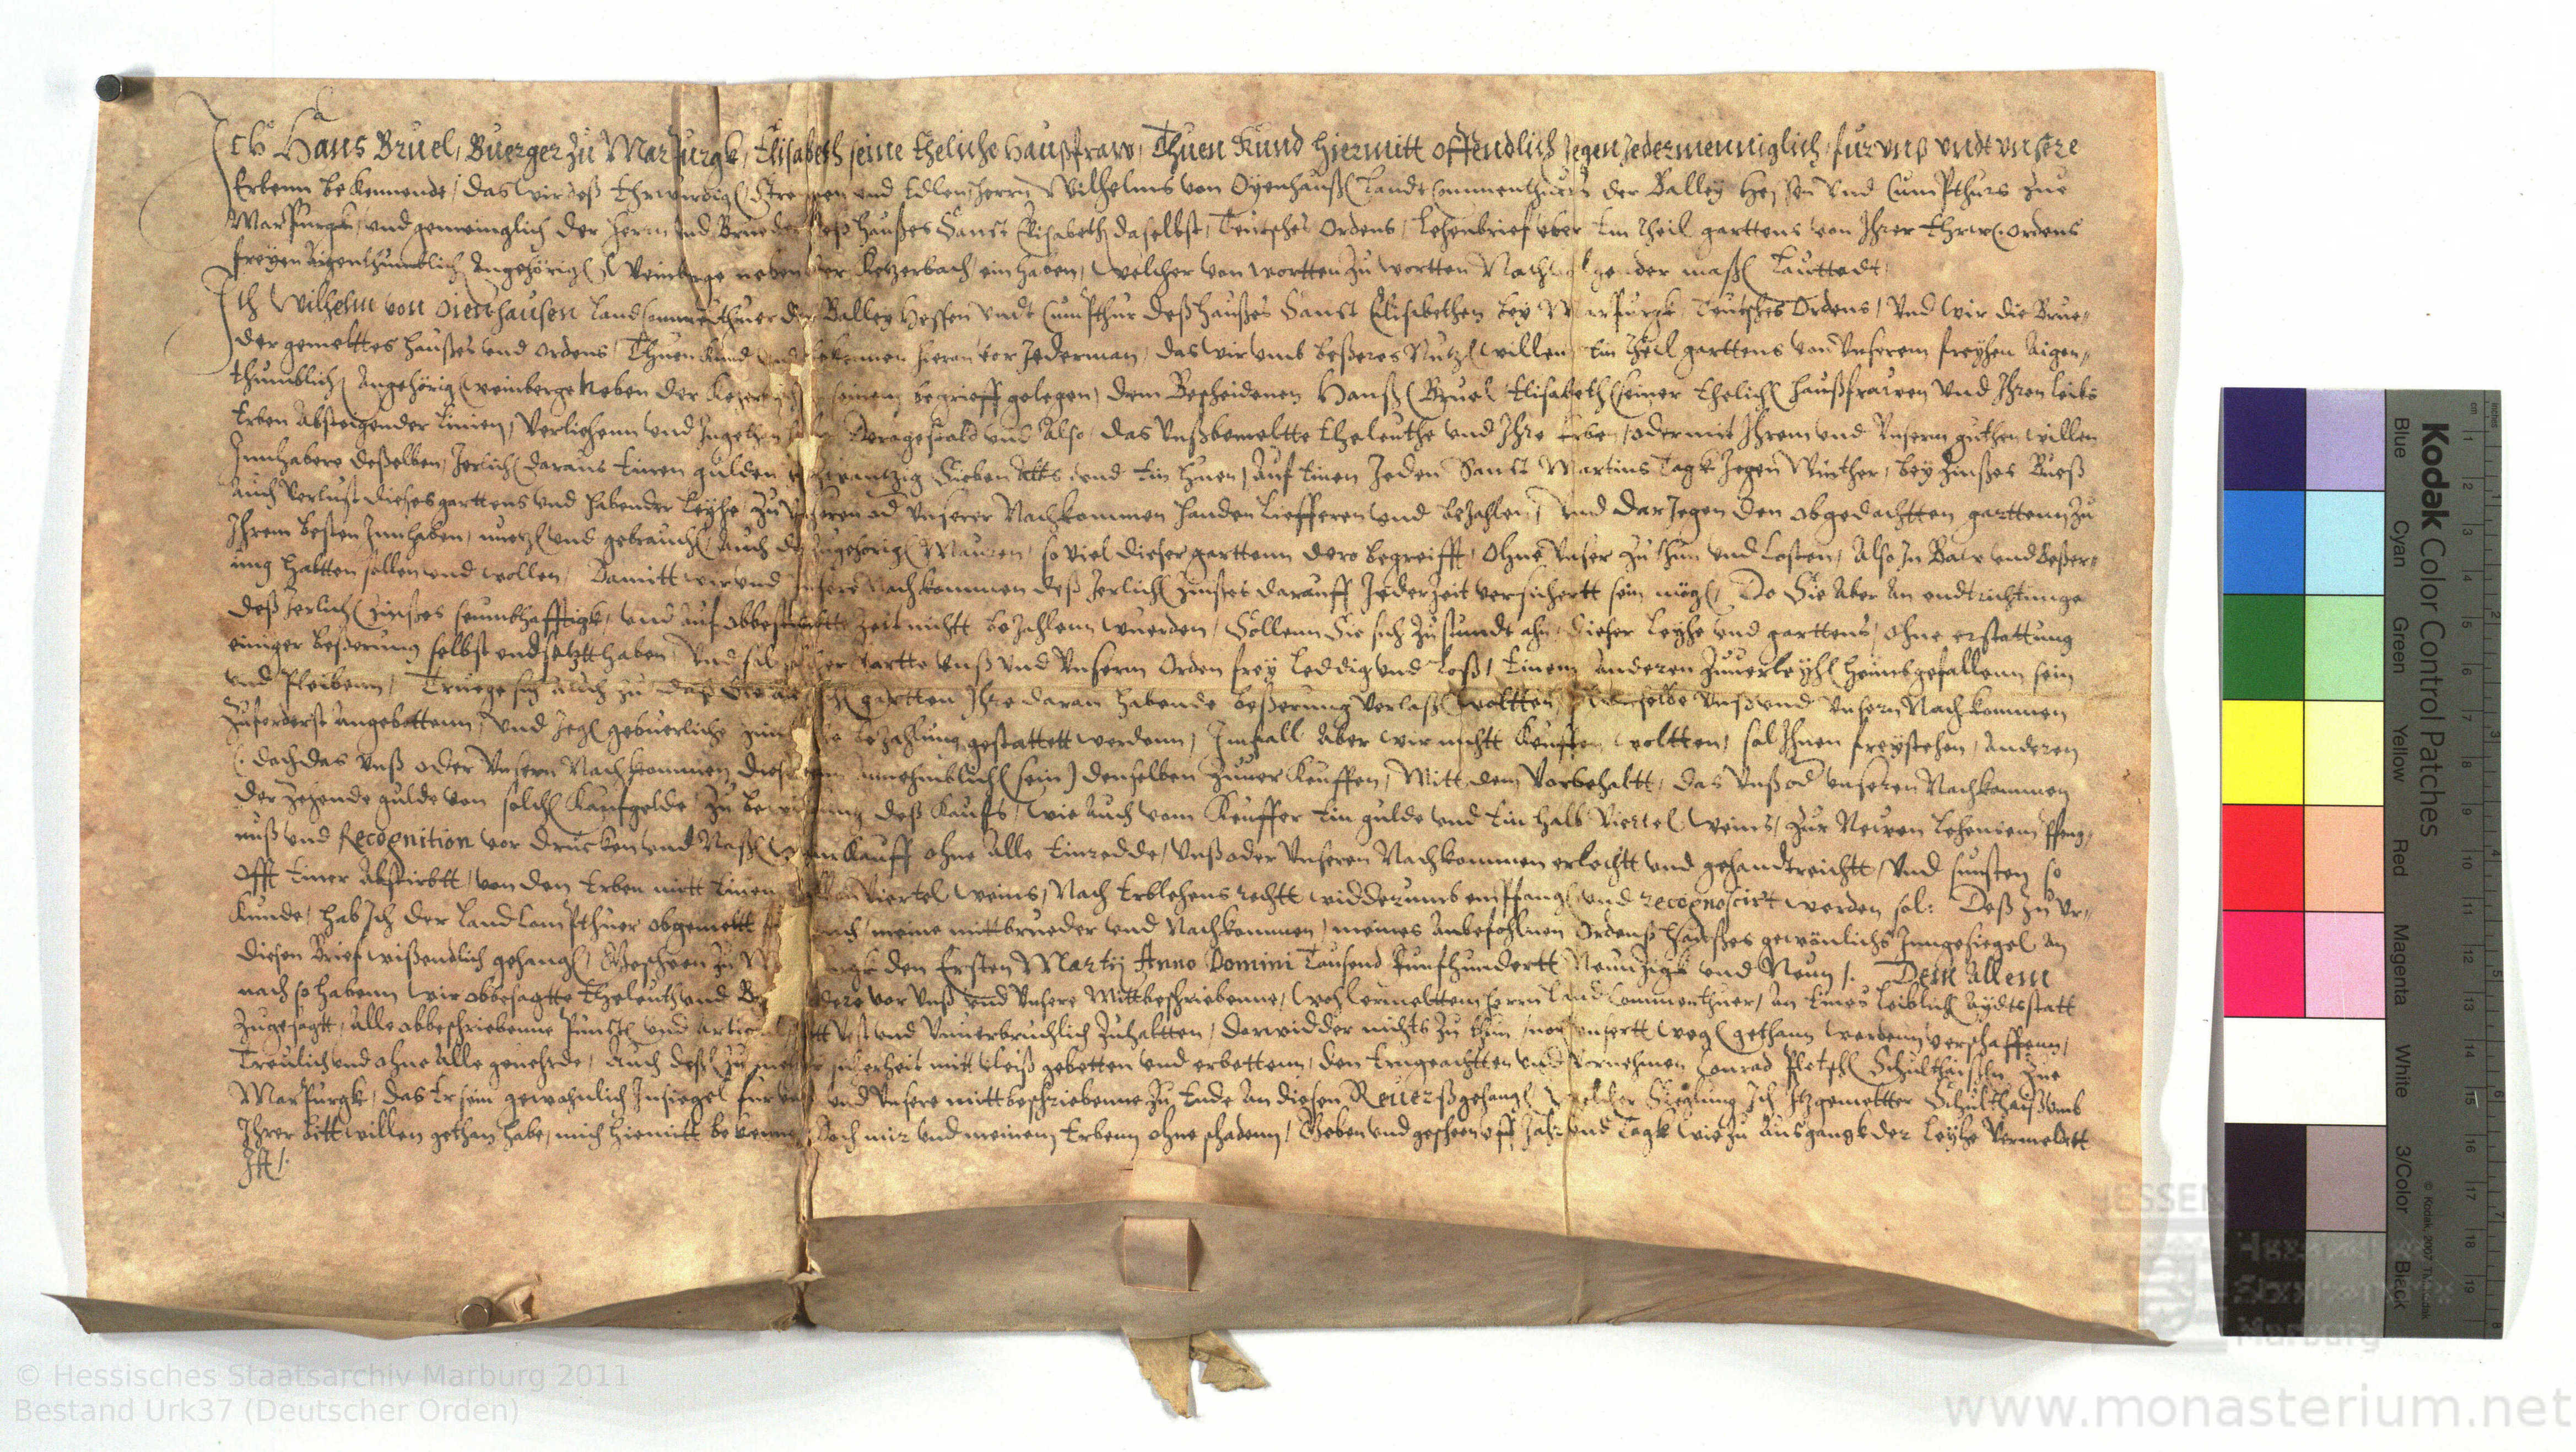 Ich Hans Bruel, Buerger zu Marpurgk, Elisabeth seine Eheliche Haußfraw, Thuen Kund hiermitt offendlich Jegen Jedermenniglich, fur unß undt unsere
Erbenn bekennende, das wir deß Ehrwirdig Strengen und Edlen herrn Wilhelms von Oyenhauß Landt Commenthurn der Balley Hessen und Cumpthurs zue
Marpurgk, und gemeinglich der herrn und Brueder deß haußes Sanct Elisabeth daselbst, Teutsches Ordens, Lehenbrief uber Ein theil garttens von Ihrer Ehrw. Ordens
freyen Aigenthumblich Angehörig Weinberge neben der Ketzerbach einhaben, welcher von wortten zu wortten Nachvolgender maß Lauttedt,
Ich Wilhelm von Oienhausen Landcommenthuer der Balley Hessen undt Cumpthur deß haußes Sanct Elisabethen bey Marpurgk Teutsches Ordens, und wir die Brue-
der gemelttes haußes und Ordens, Thuen kund und bekennen hieran vor Jederman, das wir umb beßeres Nutz willen, Ein theil garttens von unserem freyhen Aigen-
thumblich Angehörig weinberge Neben der Kezerbach In seinem begrieff gelegen, dem Bescheidenen Hanß Bruel Elisabeth seiner Ehelich haußfrawen und Ihren leibs
Erben Absteigender Linien, Verliehenn und Ingethan haben, Deragestald und Also, das unß bemeltte Eheleuthe und Ihre Erben, oder mit Ihrem und Unserm guthen willen
Innhabere deßelben, Jerlich daraus Einen gulden zu zwantzig Sieben Albs und Ein huen, Auf Einen Jeden Sanct Martins Tagk Jegen Winther, bey Zinßes Bueß
Auch Verlust dießes garttens und habender Leyhe, zu Unseren od Unserer Nachkommen handen Liefferen und bezahlen, Und dar Jegen den obgedachtten garttenn zu
Ihrem besten Innhaben, nuetz und gebrauch, Auch die zugehörig Mauren, so viel dieser garttenn dero begreifft, ohne Unser zuthun und Costen, Also In Baw und Beßer-
ung haltten sollen und wollen, Damitt wir und Unsere Nachkommen deß Jerlich Zinßes darauff Jederzeit versichertt sein mög, Do Sie Aber An endtrichtunge
deß Jerlich Zinßes seumbhafftigk, und auf obbestimbtte Zeit nichtt bezahlenn wuerden, Sollenn Sie sich zustundt ahn, dieser Leyhe und garttens, ohne erstattung
einiger beßerung selbst endsetztt haben, Und sol solcher Gartte Unß und Unserm Orden frey leddig und Loß, Einem Anderen zuverleyh heimbgefallenn sein
und Pleibenn, Truege sich Auch zu daß Sie Gartten Ihre daran habende beßerung verlaß woltten, Sol dieselbe Unß und Unsern Nachkommen
zuforderst Angebottenn, und Jeg gebuerliche bezahlung gestattett werdenn, Imfall Aber wir nichtt Keuffen woltten, sol Ihnen freystehen, Anderen
(: doch das Unß oder Unsern Nachkommen Annehmblich sein) denselben zuver Keuffen, Mitt dem Vorbehaltt, das Unß od unseren Nachkommen
der Zehende gulde von solch Kaufgelde zu bewilligung deß Kaufs, wie Auch vom Keuffer Ein gulde und Ein halb Viertel Weins, zur Newen Lehens empfeng-
nuß und Recognition vor drucken und Naß Weinkauff ohne Alle Einredde, Unß oder Unseren Nachkommen erlechtt und gehandtreichtt, Und sunsten so
offt Einer Abstirbtt, von den Erben mitt Einem halben Viertel Weins, Nach Erblehens rechtt widderumb empfang und recognoscirt werden sol: Deß zu Ur-
kunde, hab Ich der Land Compthuer obgemeltt fur mich, meine mittbrueder und Nachkommen, meines Anbefohlnen Ordenß haußes gewönlichs Inngesiegel An
diesen Brief wißendlich gehang, Gescheen zu Marpurgk den Ersten Martij Anno Domini Tausend Funfhundertt Neunzigk und Neun /. Dem Allem
nach so habenn Wir obbesagtte Eheleuth und vor Unß und Unsere Mittbeschriebenne, Wohlermelttem herrn Land Commenthuer, An Eines leiblich Aydtsstatt
zugesagtt, Alle obbeschriebenne Punct und Articul stett vest und Unverbruchlich zuhaltten, darwidder nichts zu thun, noch unsertt weg gethann werdenn verschaffenn,
Treulich und ohne Alle gevehrde, Auch deß zu mehrer sicherheit mitt vleiß gebetten und erbettenn, den Erngeachtten und Vornehmen Conrad Pletsch Schultheißen zue
Marpurgk, das Er sein gewohnlich Insiegel fur unß und Unsere mittbeschriebenne zu Ende An diesen Reuerß gehang Welcher Sieglung Ich Itzgemeltter Schultheiß umb
Ihrer bitt willen gethan habe, mich hiemitt bekenne, Doch mir und meinem Erbenn ohne schadenn, Geben und gescheen uff Jahr und Tagk wie zu Ausgangk der Leyhe Vermeldett
Ist /.
Kodak Color Control Patches
Blue Cyan Green Yellow Red Magenta White 3/Color Black
© Kodak, 2007 TM: Kodak
© Hessisches Staatsarchiv Marburg 2011
Bestand Urk37 (Deutscher Orden)
HESSEN
Hessisches
Staatsarchiv
Marburg
www.monasterium.net